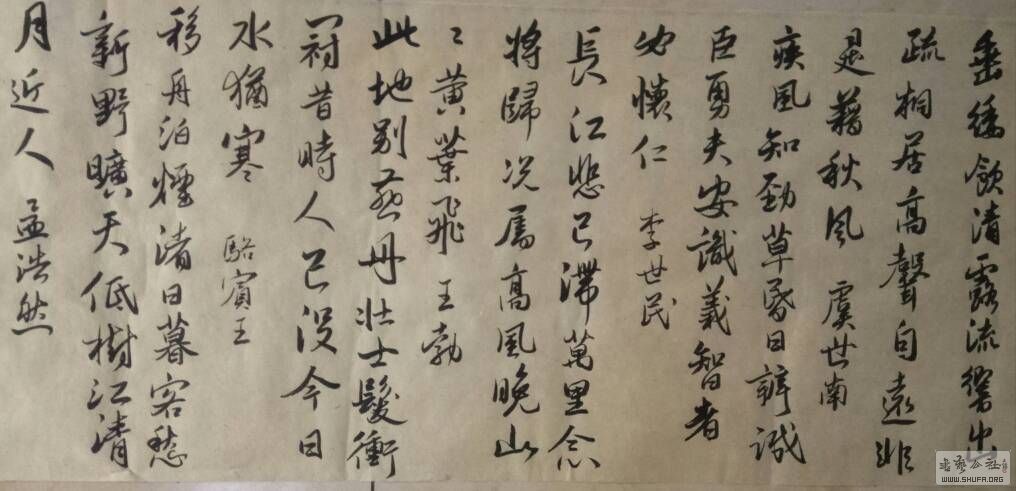 垂緌飲清露流響出
疏桐居高聲自遠非
是藉秋風 虞世南
疾風知勁草昏日辨誠
臣勇夫安識義智者
必懷仁 李世民
長江悲已滯萬里念
將歸況屬高風晚山
〻黃葉飛 王勃
此地別燕丹壯士髮衝
冠昔時人已沒今日
水猶寒 駱賓王
移舟泊煙渚日暮客愁
新野曠天低樹江清
月近人 孟浩然
书法公社
WWW.SHUFA.ORG